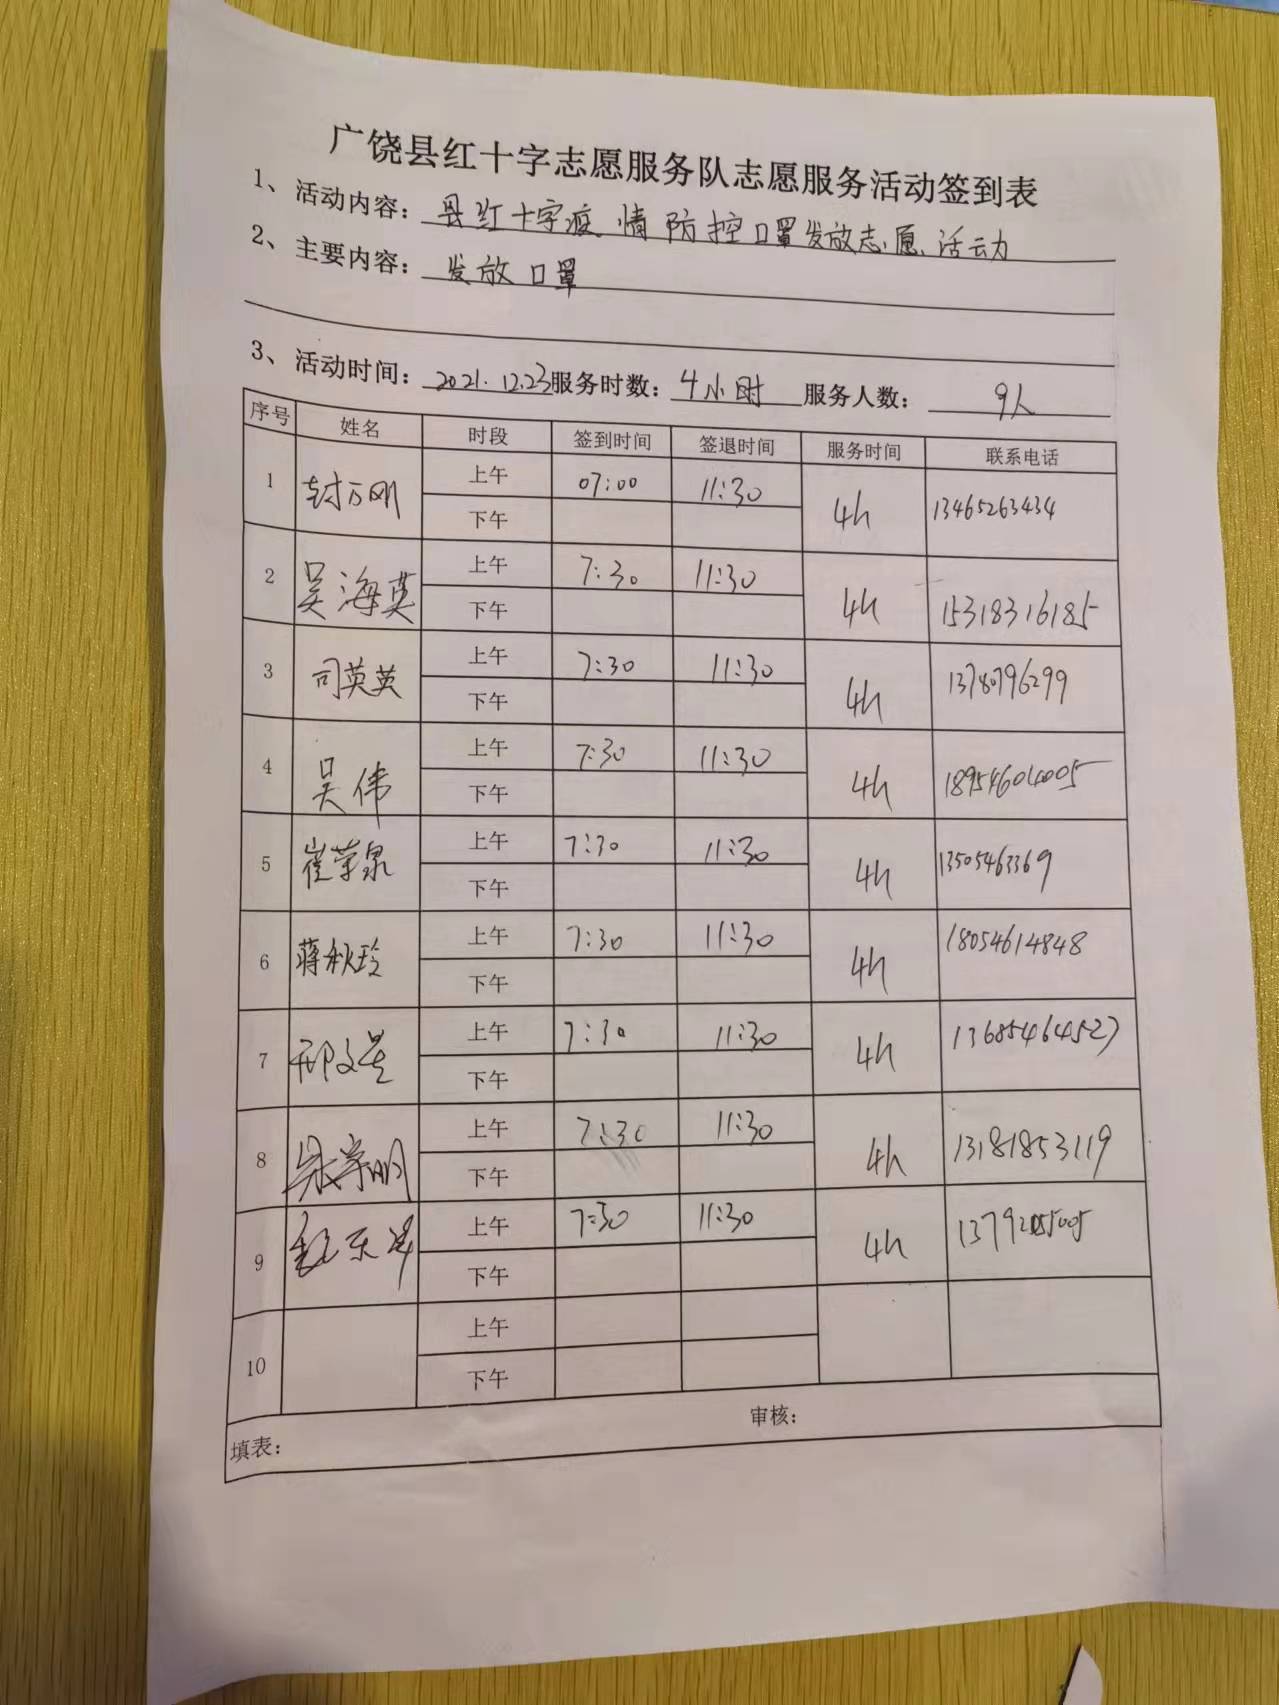 广饶县红十字志愿服务队志愿服务活动签到表
1、活动内容：县红十字疫情防控口罩发放志愿活动
2、主要内容：发放口罩
3、活动时间：2021.12.23服务时数：4小时 服务人数：9人
序号 姓名 时段 签到时间 签退时间 服务时间 联系电话
1 封万刚 上午 07:00 11:30 4h 13465263434
下午
2 吴海英 上午 7:30 11:30 4h 15318316185
下午
3 司英英 上午 7:30 11:30 4h 13780796299
下午
4 吴伟 上午 7:30 11:30 4h 18954604005
下午
5 崔荣泉 上午 7:30 11:30 4h 13505463369
下午
6 蒋秋玲 上午 7:30 11:30 4h 18054614848
下午
7 上午 7:30 11:30 4h 13685464527
下午
8 上午 7:30 11:30 4h 13181853119
下午
9 上午 7:30 11:30 4h
下午
10 上午
下午
填表： 审核：